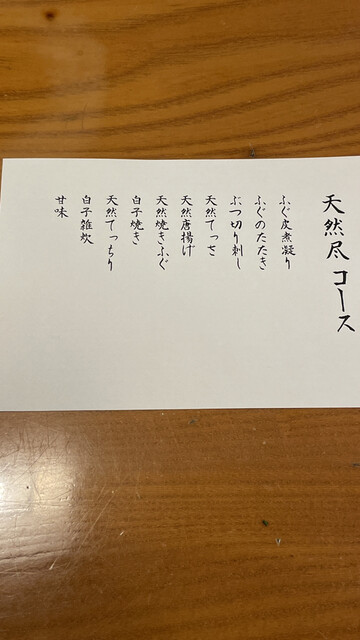 天然尽コース
ふぐ皮煮凝り
ふぐのたたき
ぶつ切り刺し
天然てっさ
天然唐揚げ
天然焼きふぐ
白子焼き
天然てっちり
白子雑炊
甘味